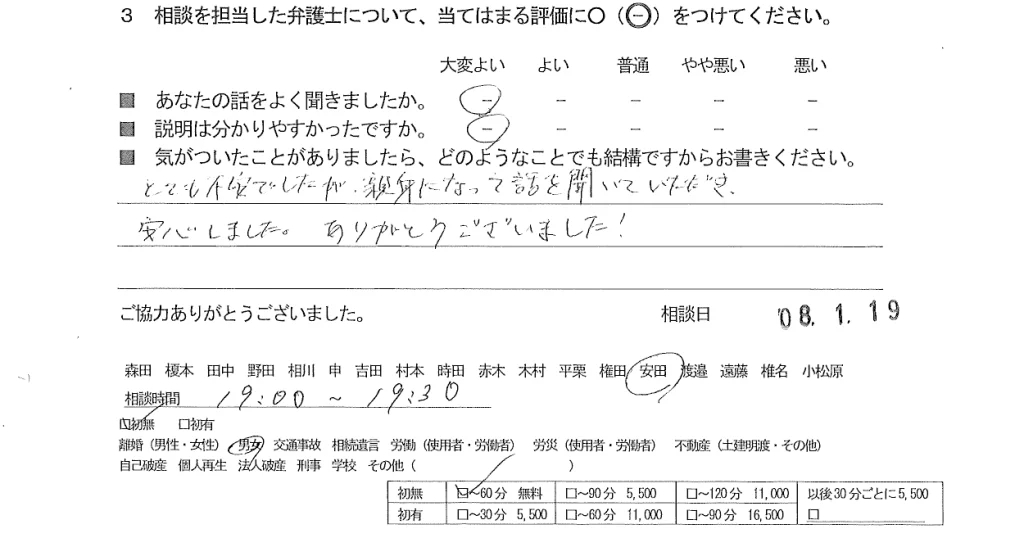 3 相談を担当した弁護士について、当てはまる評価に○（㊀）をつけてください。
大変よい よい 普通 やや悪い 悪い
■ あなたの話をよく聞きましたか。 － － － － －
■ 説明は分かりやすかったですか。 － － － － －
■ 気がついたことがありましたら、どのようなことでも結構ですからお書きください。
とても不安でしたが、親身になって話を聞いていただき、
安心しました。ありがとうございました！
ご協力ありがとうございました。 相談日 '08. 1. 19
森田 榎本 田中 野田 相川 申 吉田 村本 時田 赤木 木村 平栗 権田 安田 渡邉 遠藤 椎名 小松原
相談時間 19:00 ～ 19:30
□初無 □初有
離婚（男性・女性） 男女 交通事故 相続遺言 労働（使用者・労働者） 労災（使用者・労働者） 不動産（土建明渡・その他）
自己破産 個人再生 法人破産 刑事 学校 その他（ ）
初無 □～60分 無料 □～90分 5,500 □～120分 11,000 以後30分ごとに5,500
初有 □～30分 5,500 □～60分 11,000 □～90分 16,500 □